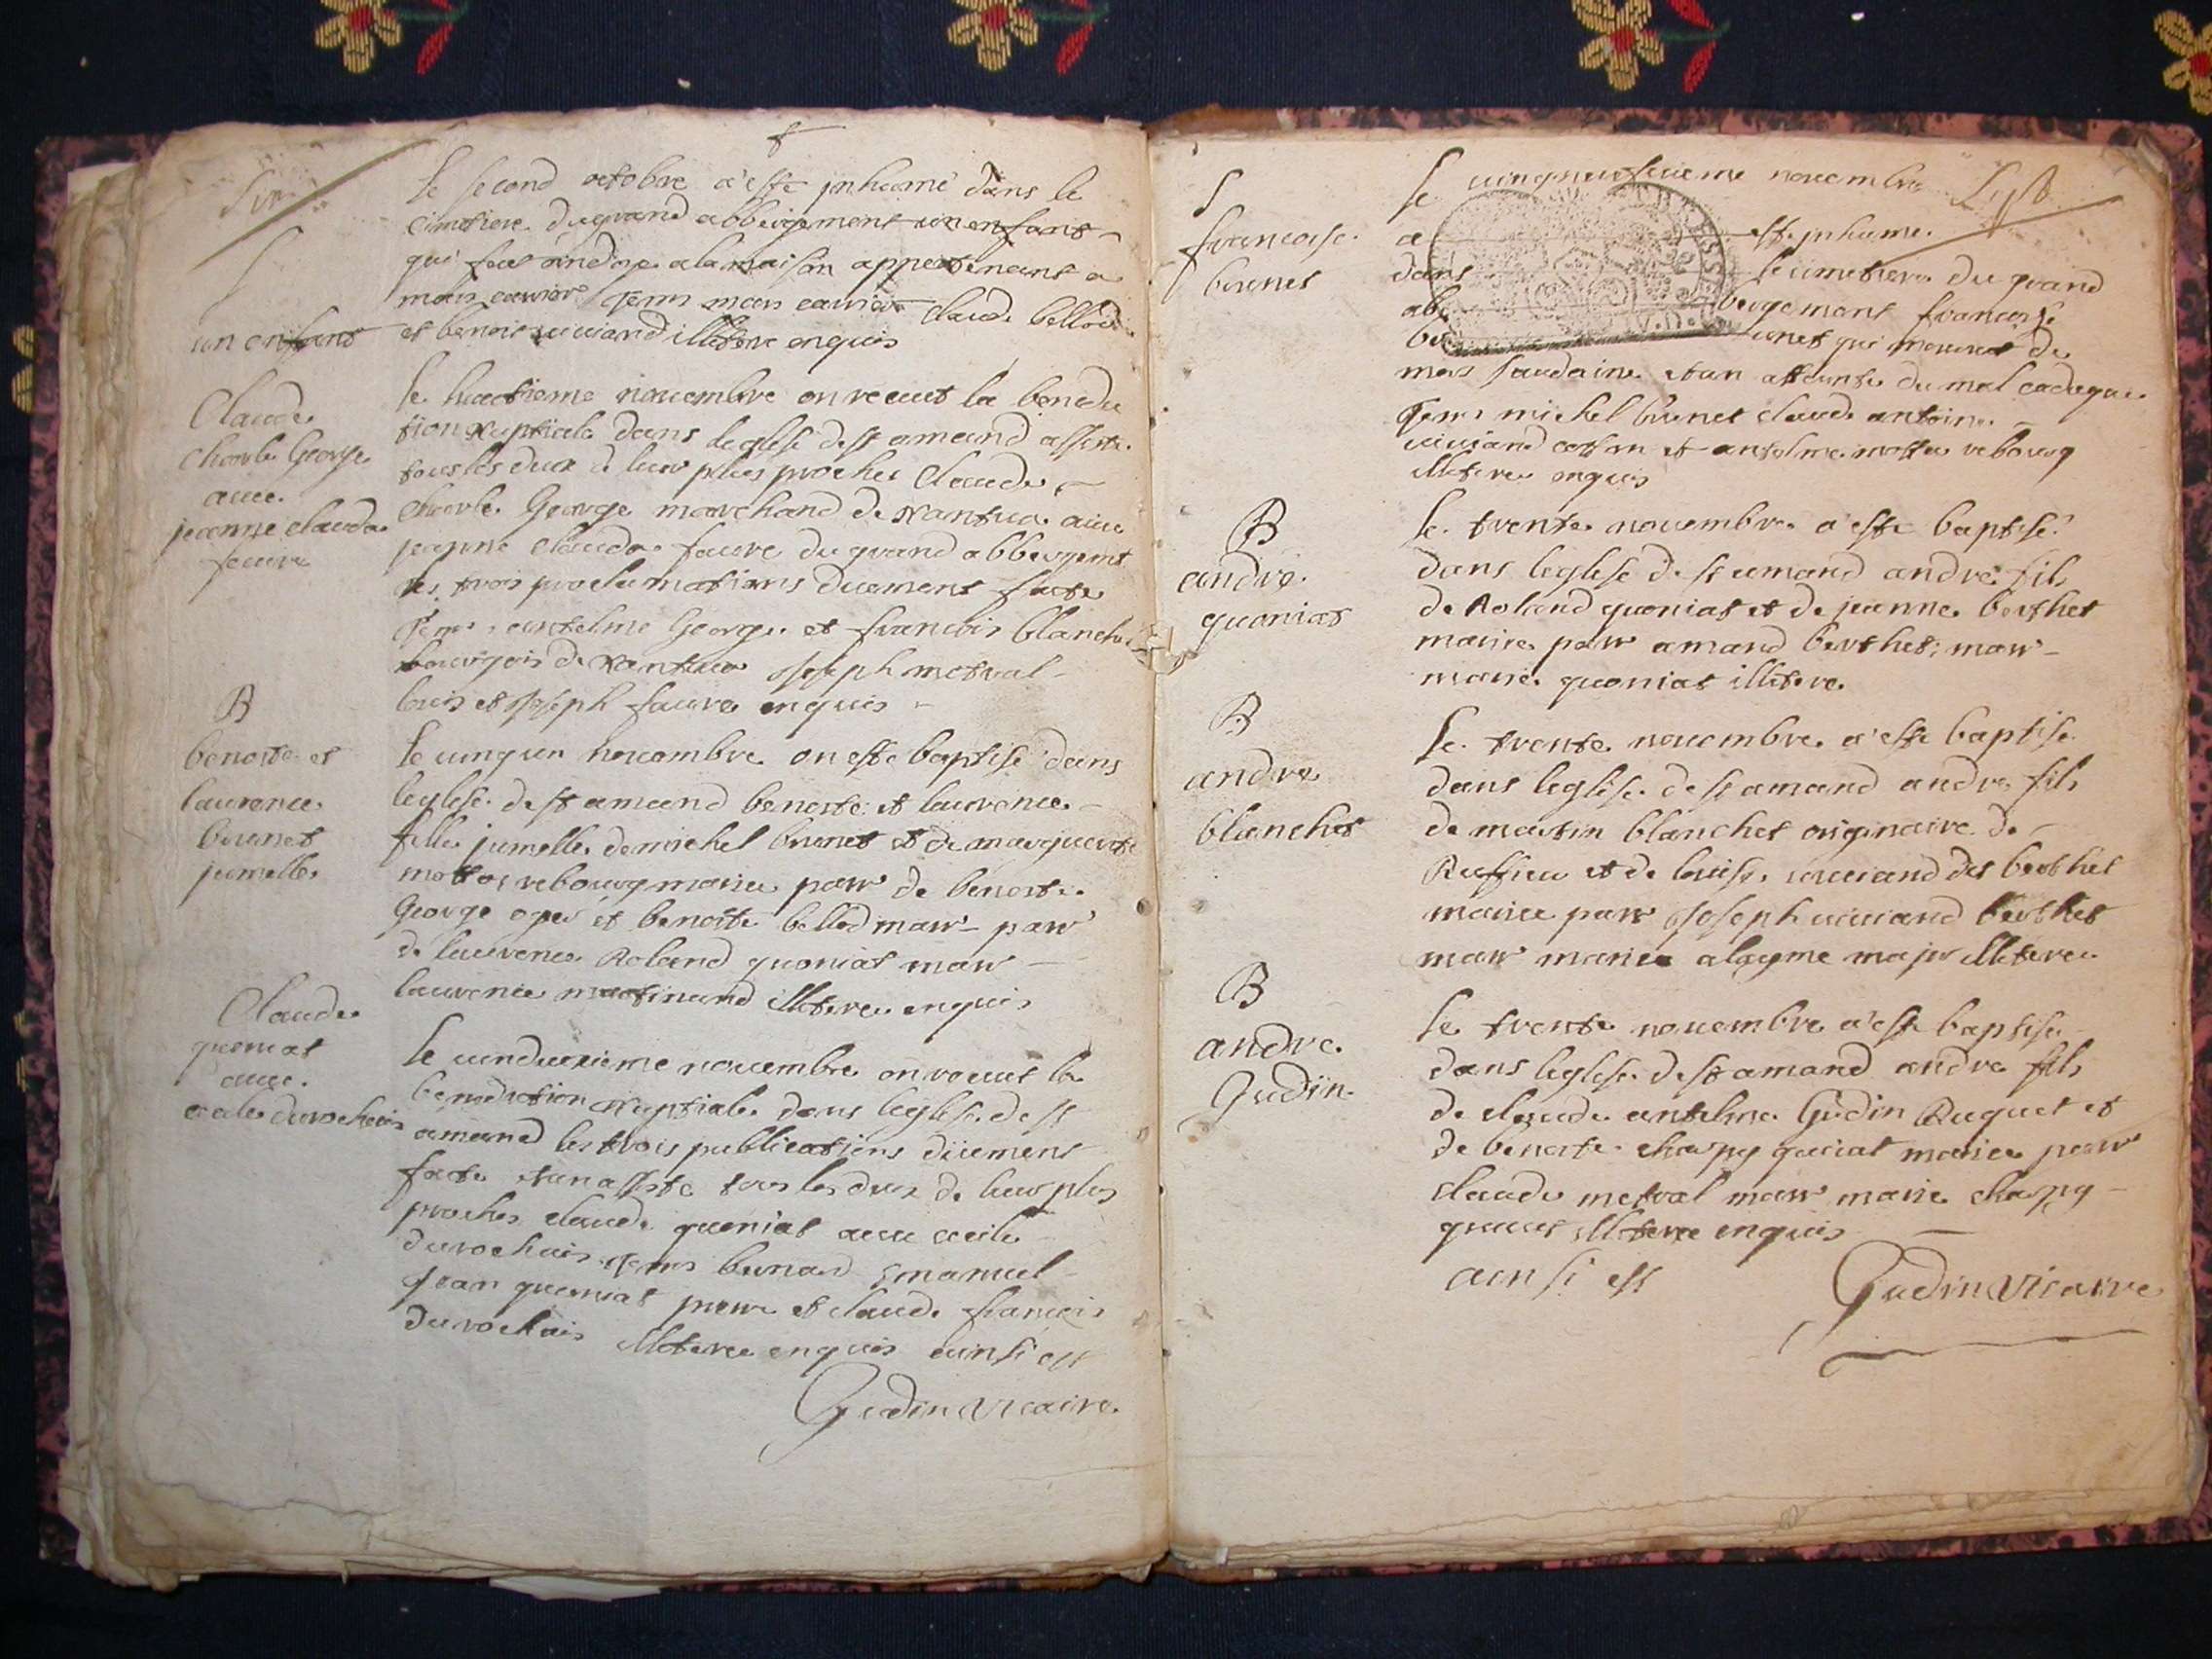 S
un enfant
le second octobre a este inhumé dans le
cimetiere du grand abbergement un enfant
qui fut a la maison appartenant a
claude bellod
et benoit viuiand illitere enquis
Claude
Charle George
auec
jeanne clauda
faure
le huictieme nouembre on receut la benedic
tion Nuptiale dans leglise de st amand assisté
tous les deux de leur plus proches Claude
Charle George marchand de Nantua auec
jeanne clauda faure du grand abbergemt
les trois proclamations duement facte
antelme George et francois blanchet
bourgois de Nantua joseph metral
louis et joseph faure enquis
B
benoste et
laurence
brunet
jumelle
le uingun nouembre on este baptisé dans
leglise de st amand benoste et laurence
fille jumelle de michel brunet et de marguerite
mottet rebourg mariee parr de benoste
George oger et benoste bellod marr parr
de laurence Roland quoniat marr
laurence martinand illitere enquis
Claude
quoniat
auec
durochais
le uinduexieme nouembre on receut la
benediction Nuptiale dans leglise de st
amand les trois publications düement
facte etan assisté tous les deux de leur plus
proches claude quoniat auec cecile
durochais
jean quoniat et claude francois
durochais illitere enquis ainsi est
Gudin vicaire
S
francoise
brunet
le uingneufuieme nouembre
a este inhumé
dans le cimetiere du grand
abbergement francoise
brunet qui mourut de
mort soudaine etan atteinte du mal caduque
michel brunet claude antoine
uiuiand et antelme mottet rebourg
illitere enquis
B
andre
quoniat
le trente nouembre a este baptisé
dans leglise de st amand andre fils
de Roland quoniat et de jeanne berthet
mariee parr amand berthet marr
marie quoniat illitere
B
andre
blanchet
le trente nouembre a este baptisé
dans leglise de st amand andre fils
de martin blanchet originaire de
Ruffieu et de louise uiuiand dit berthet
mariee parr joseph uiuiand berthet
marr marie alagme major illitere
B
andre
Gudin
le trente nouembre a este baptisé
dans leglise de st amand andre fils
de claude antelme Gudin Ruguet et
de benoste charpy mariee parr
claude metral marr marie charpy
illitere enquis
ainsi est Gudin vicaire